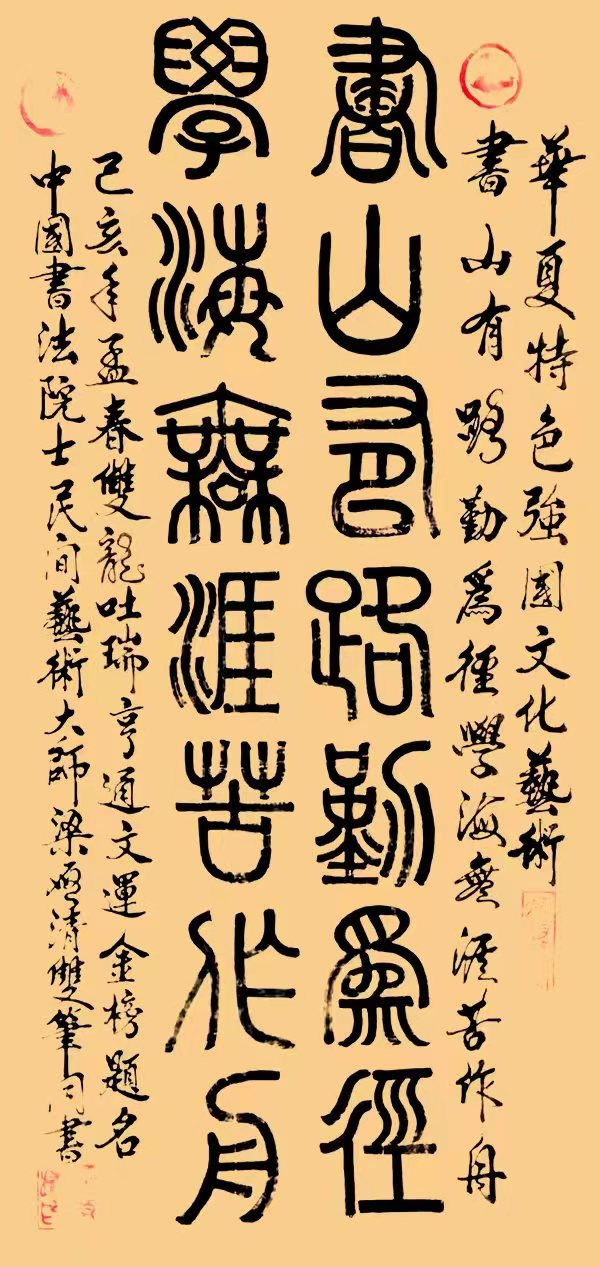 華夏特色強國文化藝術
書山有路勤爲徑學海無涯苦作舟
書山有路勤爲徑
學海無涯苦作舟
己亥年孟春雙龍吐瑞亨通文運金榜題名
中國書法院士民间藝術大師梁清雙筆同書